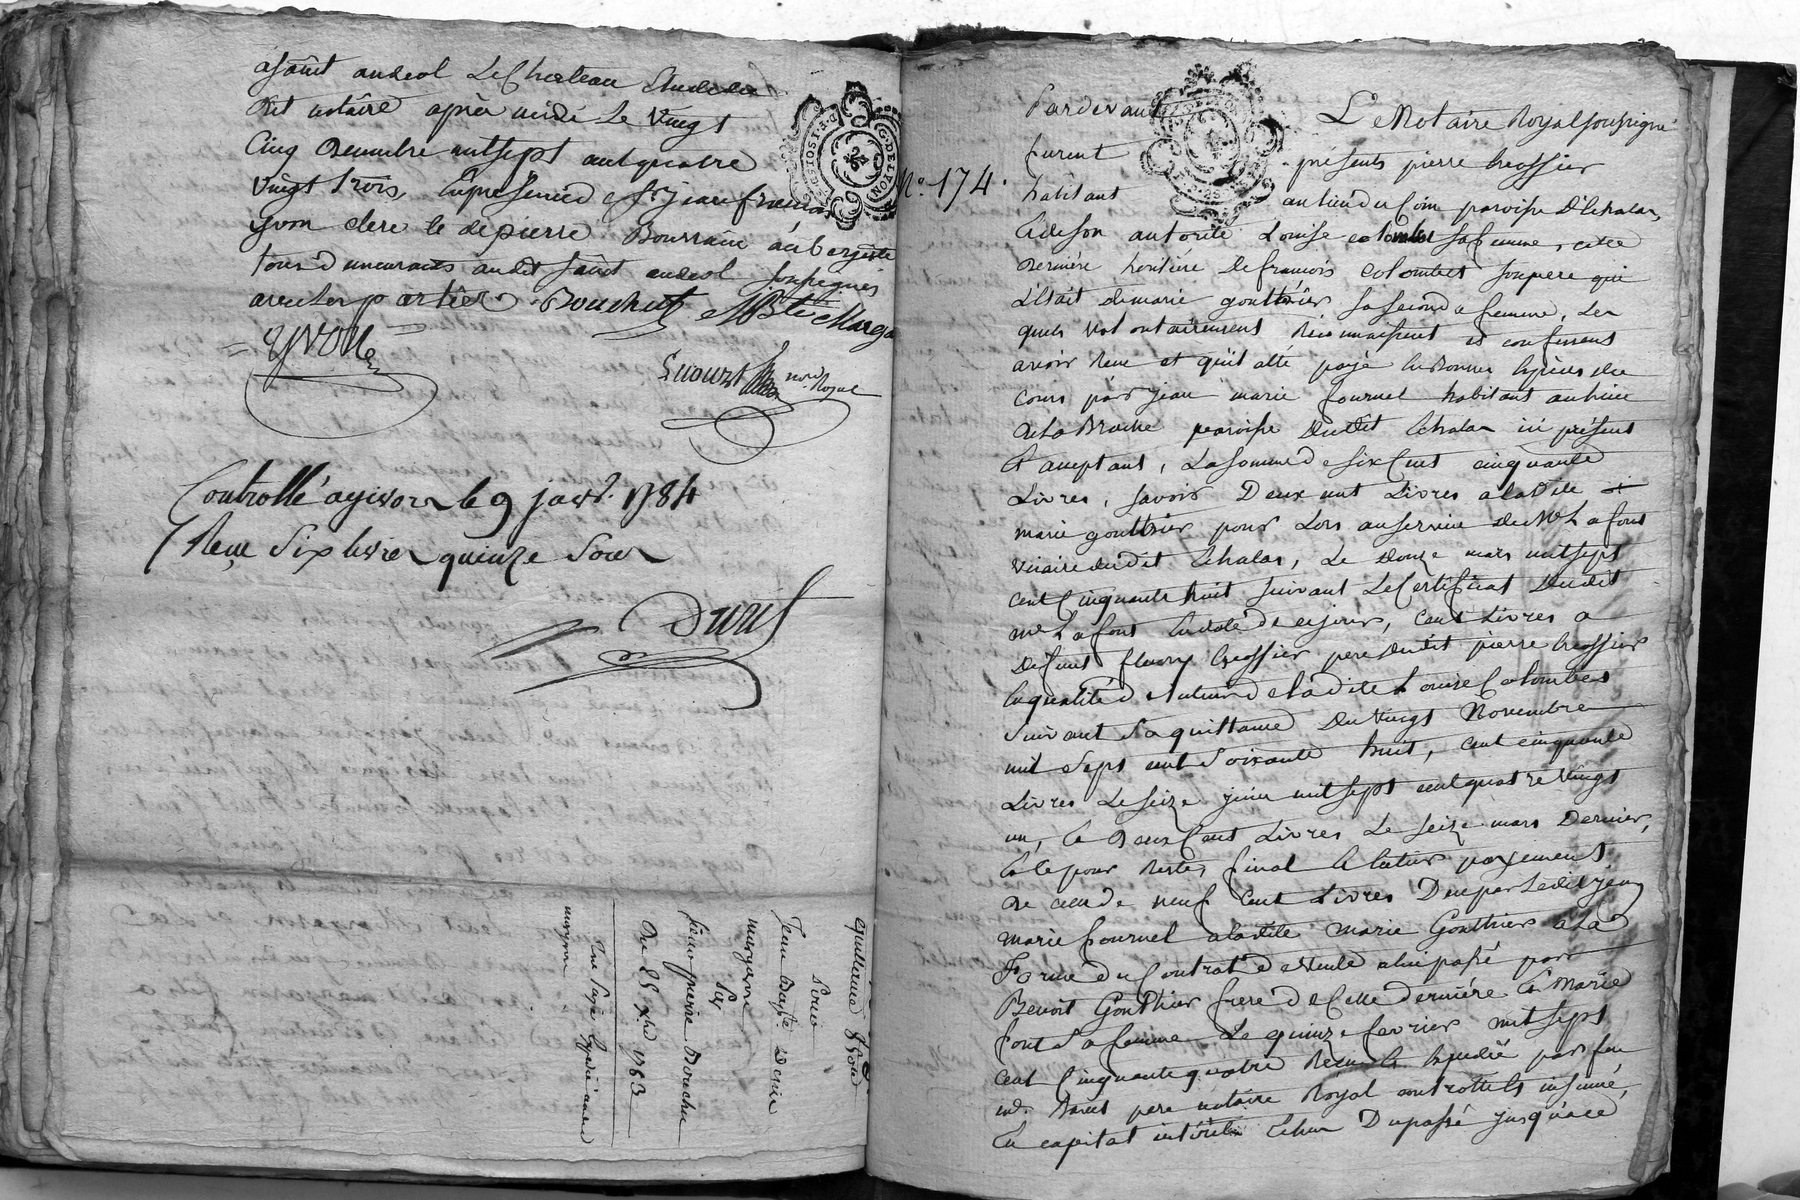 a saint andeol Le Chateau Etude du
dit notaire après midi Le vingt
Cinq decembre mil sept cent quatre
vingt trois, En présence de Sr Jean francois
yvon clerc et de pierre Bourrain aubergiste
tous demeurants audit saint andeol soussignés
avec les parties. Bouchut Bte Marga
YVON
nore Royal
Controllé a givors le 9 janvr. 1784
Reçu Six livres quinze Sous
Duzut
quittance
Pour
Jean Bapte Denis
margaron
Par
Sieur pierre Bouchu
Du 25 Xbre 1783
Une Expédiée a
margaron
G. DE LYON
Pardevant Le Notaire Royal soussigné
No. 174.
furent présents pierre
habitant au lieu du Coin paroisse D'Echalas,
Et de son autorité Louise Colombet sa femme, cette
derniére heritière de francois colombet son pere qui
L'était de marie gonthier sa seconde femme, Les
quels volontairement reconnaissent et confessent
avoir reçu et qu'il a été payé En bonnes Espèces du
cours par jean marie fournel habitant au lieu
de la Broche paroisse dudit Echalas ici présent
Et acceptant, La somme de six Cent cinquante
Livres, savoir Deux cent Livres a ladite
marie gonthier pour Lors au service de Me Lafont
vicaire dudit Echalas, Le Douze mars mil sept
cent Cinquante huit suivant Le Certificat dudit
me Lafont En date de ce jour, Cent Livres a
Defunt fleury pere dudit pierre
En qualité de tuteur de ladite Louise Colombet
suivant sa quittance Du vingt Novembre
mil sept cent soixante huit, cent cinquante
Livres Le seize juin mil sept cent quatre vingt
un, Et deux Cent Livres Le seize mars Dernier,
Et ce pour reste, final Et Entier payement
de celle de neuf Cent Livres Due par Ledit jean
marie fournel a ladite marie Gonthier a La
Forme du Contrat de vente a lui passé par
Benoit Gonthier frere de Cette derniére Et Marie
font sa femme Le quinze fevrier mil sept
cent Cinquante quatre recu Et Expedié par feu
me pere notaire Royal controllé Et insinué,
En capital intérêts Echus Du passé jusqu'a ce